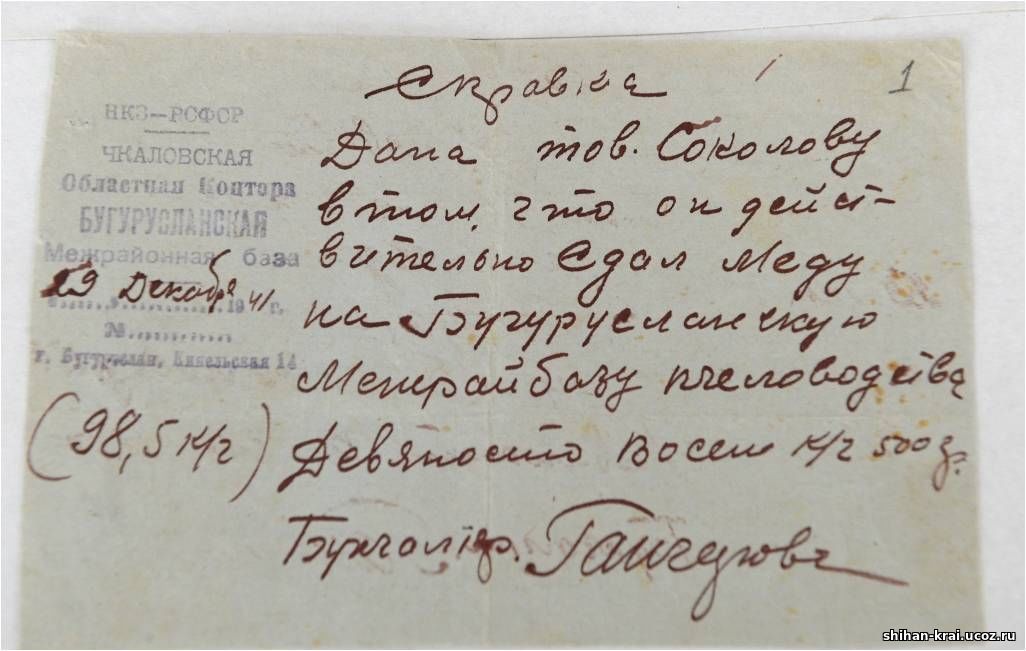 1
Справка
НКЗ—РСФСР
ЧКАЛОВСКАЯ
Областная Контора
БУГУРУСЛАНСКАЯ
Межрайонная база
29 Декабря 1941 г.
№
г. Бугуруслан, 14
(98,5 к/г)
Дана тов. Соколову
в том, что он дейст-
вительно Сдал Меду
на Бугурусланскую
Межрайбазу пчеловодства
Девяносто Восем к/г 500 г.
Бухгалтер.
shihan-krai.ucoz.ru